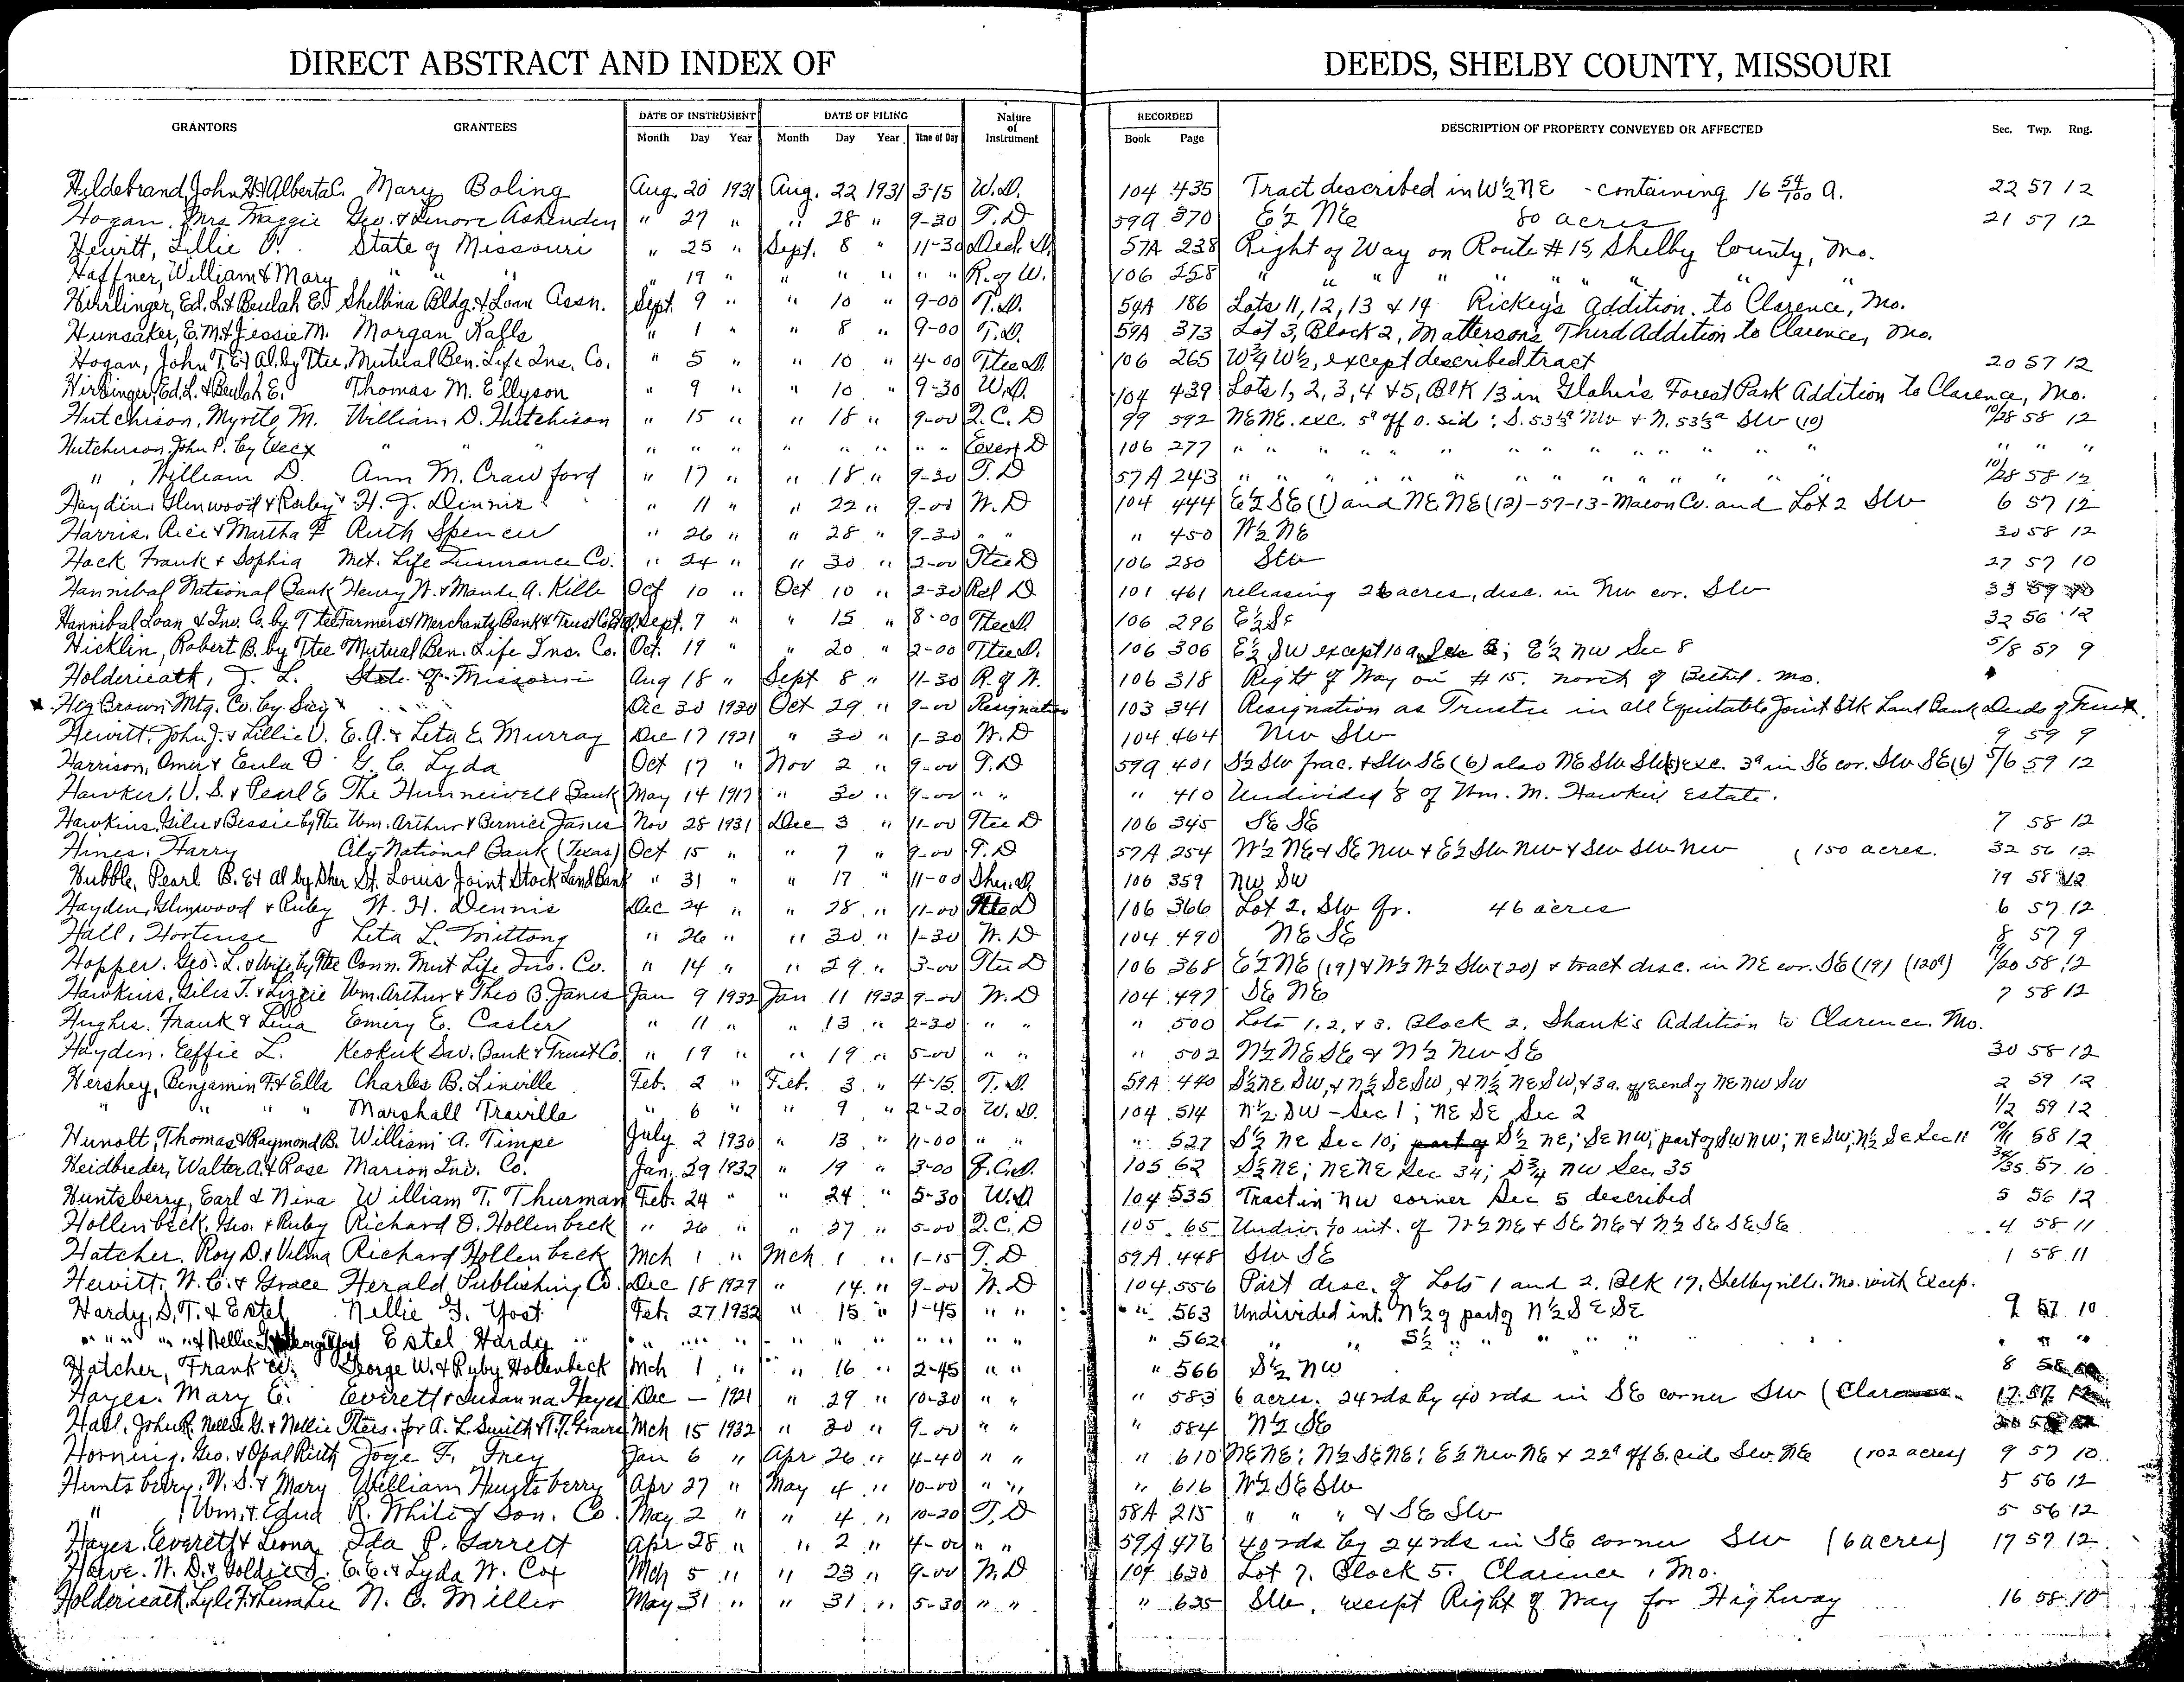 DIRECT ABSTRACT AND INDEX OF DEEDS, SHELBY COUNTY, MISSOURI
GRANTORS GRANTEES DATE OF INSTRUMENT DATE OF FILING Nature of Instrument RECORDED DESCRIPTION OF PROPERTY CONVEYED OR AFFECTED Sec. Twp. Rng.
Month Day Year Month Day Year Time of Day Book Page
Hildebrand, John H. & Alberta C. Mary Boling Aug. 20 1931 Aug. 22 1931 3-15 W.D. 104 435 Tract described in W½ NE - containing 16 54/100 A. 22 57 12
Hogan, Mrs Maggie Geo. & Lenore Ashenden " 27 " " 28 " 9-30 T.D 59A 370 E½ NE 80 acres 21 57 12
Hewitt, Lillie V. State of Missouri " 25 " Sept. 8 " 11-30 Deed 57A 238 Right of Way on Route #15, Shelby County, Mo.
Haffner, William & Mary " " " " 19 " " " " " " R. of W. 106 258 " " " " " " " " "
Hirrlinger, Ed. L. & Beulah E. Shelbina Bldg. & Loan Assn. Sept. 9 " " 10 " 9-00 T.D. 59A 186 Lots 11, 12, 13 & 14 Rickey's Addition to Clarence, Mo.
Hunsaker, E.M. & Jessie M. Morgan Ralls " 1 " " 8 " 9-00 T.D. 59A 373 Lot 3, Block 2, Matterson's Third Addition to Clarence, Mo.
Hogan, John T. Et Al. by Ttee. Mutual Ben. Life Ins. Co. " 5 " " 10 " 4-00 Ttee D. 106 265 W¾ W½, except described tract 20 57 12
Hirrlinger, Ed. L. & Beulah E. Thomas M. Ellyson " 9 " " 10 " 9-30 W.D. 104 439 Lots 1, 2, 3, 4 & 5, Blk 13 in Glahn's Forest Park Addition to Clarence, Mo.
Hutchison, Myrtle M. William D. Hutchison " 15 " " 18 " 9-00 Q.C.D 99 592 NE NE. exc. 5ª off S. side; S. 53⅓ª NW & N. 53⅓ª SW (10) 10/28 58 12
Hutcherson John P. by Execx " " " " " " " " " " " Exec D 106 277 " " " " " " " " " " " "
" , William D. Ann M. Crawford " 17 " " 18 " 9-30 T.D 57A 243 " " " " " " " " " " 10/28 58 12
Hayden, Glenwood & Ruby H. J. Dennis " 11 " " 22 " 9-00 W.D 104 444 E½ SE (1) and NE NE (12)-57-13-Macon Co. and Lot 2 SW 6 57 12
Harris, Rice & Martha F Ruth Spencer " 26 " " 28 " 9-30 " " " 450 W½ NE 30 58 12
Hack, Frank & Sophia Met. Life Insurance Co. " 24 " " 30 " 2-00 Ttee D 106 280 SW 27 57 10
Hannibal National Bank Henry W. & Maude A. Kille Oct 10 " Oct 10 " 2-30 Rel D 101 461 releasing 26 acres, desc. in NW cor. SW 33
Hannibal Loan & Inv. Co. by Ttee Farmers & Merchants Bank & Trust Co. Sept. 7 " " 15 " 8-00 Ttee D. 106 296 E½ SE 32 56 12
Hicklin, Robert B. by Ttee Mutual Ben. Life Ins. Co. Oct. 19 " " 20 " 2-00 Ttee D. 106 306 E½ SW except 10a Sec 5; E½ NW Sec 8 5/8 57 9
Holdericath, J. L. State of Missouri Aug 18 " Sept 8 " 11-30 R. of W. 106 318 Right of Way on #15. north of Bethel. Mo.
x Brown Mtg. Co. by " " " Dec 30 1930 Oct 29 " 9-00 Resignation 103 341 Resignation as Trustee in all Equitable Joint Stk Land Bank Deeds of Trust.
Hewitt, John J. & Lillie V. E. A. & Leta E. Murray Dec 17 1921 " 30 " 1-30 W.D 104 464 NW SW 9 59 9
Harrison, Omer & Eula D G. C. Lyda Oct 17 " Nov 2 " 9-00 T.D 59A 401 S½ SW frac. & SW SE (6) also NE SW SW (5) exc. 3ª in SE cor. SW SE (6) 5/6 59 12
Hawker, V. S. & Pearl E The Hunnewell Bank May 14 1917 " 30 " 9-00 " " " 410 Undivided ⅛ of Wm. M. Hawker Estate.
Hawkins, Giles & Bessie by Ttee Wm. Arthur & Bernice Janes Nov 28 1931 Dec 3 " 11-00 Ttee D 106 345 SE SE 7 58 12
Hines, Harry City National Bank (Texas) Oct 15 " " 7 " 9-00 T.D 57A 254 W½ NE & SE NW & E½ SW NW & SW SW NW (150 acres. 32 56 12
Hubble, Pearl B. Et Al by Sher. St. Louis Joint Stock Land Bank " 31 " " 17 " 11-00 Sher. D. 106 359 NW SW 19 58 12
Hayden, Glenwood & Ruby W. H. Dennis Dec 24 " " 28 " 11-00 Ttee D 106 366 Lot 2. SW Qr. 46 acres 6 57 12
Hall, Hortense Leta L. Mittong " 26 " " 30 " 1-30 W.D 104 490 NE SE 8 57 9
Hopper, Geo. L. & Wife by Ttee Conn. Mut Life Ins. Co. " 14 " " 29 " 3-00 Ttee D 106 368 E½ NE (19) & W½ W½ SW (20) & tract desc. in NE cor. SE (19) (120ª) 19/20 58 12
Hawkins, Giles T. & Lizzie Wm. Arthur & Theo B. Janes Jan 9 1932 Jan 11 1932 9-00 W.D 104 497 SE NE 7 58 12
Hughes, Frank & Lena Emery E. Casler " 11 " " 13 " 2-30 " " " 500 Lots 1. 2. & 3. Block 2. Shank's Addition to Clarence. Mo.
Hayden, Effie L. Keokuk Sav. Bank & Trust Co. " 19 " " 19 " 5-00 " " " 502 N½ NE SE & N½ NW SE 30 58 12
Hershey, Benjamin F. & Ella Charles B. Linville Feb. 2 " Feb. 3 " 4-15 T.D. 59A 440 S½ NE SW, & N½ SE SW, & N½ NE SW, & 3a. off E end of NE NW SW 2 59 12
" " " " Marshall Traville " 6 " " 9 " 2-20 W.D. 104 514 N½ SW - Sec 1; NE SE Sec 2 1/2 59 12
Hunolt, Thomas & Raymond B. William A. Timpe July 2 1930 " 13 " 11-00 " " " 527 S½ NE Sec 10; part of S½ NE; SE NW; part of SW NW; NE SW; N½ SE Sec 11 10/11 58 12
Heidbreder, Walter A. & Rose Marion Inv. Co. Jan. 29 1932 " 19 " 3-00 Q.C.D. 105 62 S½ NE; NE NE Sec 34; S¾ NW Sec. 35 34/35 57 10
Huntsberry, Earl & Nina William T. Thurman Feb. 24 " " 24 " 5-30 W.D 104 535 Tract in NW corner Sec 5 described 5 56 12
Hollenbeck, Geo. & Ruby Richard O. Hollenbeck " 26 " " 27 " 5-00 Q.C.D 105 65 Undiv. int. of W½ NE & SE NE & N½ SE SE SE 4 58 11
Hatcher, Roy D. & Velma Richard Hollenbeck Mch 1 " Mch 1 " 1-15 T.D 59A 448 SW SE 1 58 11
Hewitt, W. C. & Grace Herald Publishing Co. Dec 18 1929 " 14 " 9-00 W.D 104 556 Part desc. of Lots 1 and 2. Blk 17. Shelbyville. Mo. with Excep.
Hardy, S.T. & Estel Nellie G. Yost Feb. 27 1932 " 15 " 1-45 " " " 563 Undivided int. N½ of part of N½ SE SE 9 57 10
" " " " & Nellie Yost Estel Hardy " " " " " " " " " " " 562 " " S½ " " " " " " " "
Hatcher, Frank W. George W. & Ruby Hollenbeck Mch 1 " " 16 " 2-45 " " " 566 S½ NW 8
Hayes. Mary E. Everett & Susanna Hayes Dec - 1921 " 29 " 10-30 " " " 583 6 acres. 24 rds by 40 rds in SE corner SW (Clarence. 17 57 12
Hall, John R. Nellie G. & Nellie for A. L. Smith & T. T. Mch 15 1932 " 30 " 9-00 " " " 584 N½ SE
Horning, Geo. & Opal Ruth Joye F. Frey Jan 6 " Apr 26 " 4-40 " " " 610 NE NE; N½ SE NE; E½ NW NE & 22ª off E. side SW. NE (102 acres) 9 57 10
Huntsberry, W. S. & Mary William Huntsberry Apr 27 " May 4 " 10-00 " " " 616 W½ SE SW 5 56 12
" , Wm. & Edna R. White & Son. Co. May 2 " " 4 " 10-20 T.D 58A 215 " " " & SE SW 5 56 12
Hayes, Everett & Leona Ida P. Garrett Apr 28 " " 2 " 4-00 " " 59A 476 40 rds by 24 rds in SE corner SW (6 acres) 17 57 12
Hawe. W. D. & Goldie D. E. E. & Lyda W. Cox Mch 5 " " 23 " 9-00 W.D 104 630 Lot 7. Block 5. Clarence, Mo.
Holdericath, Lyle F. & Therma Lee N. C. Miller May 31 " " 31 " 5-30 " " " 635 SW, except Right of Way for Highway 16 58 10